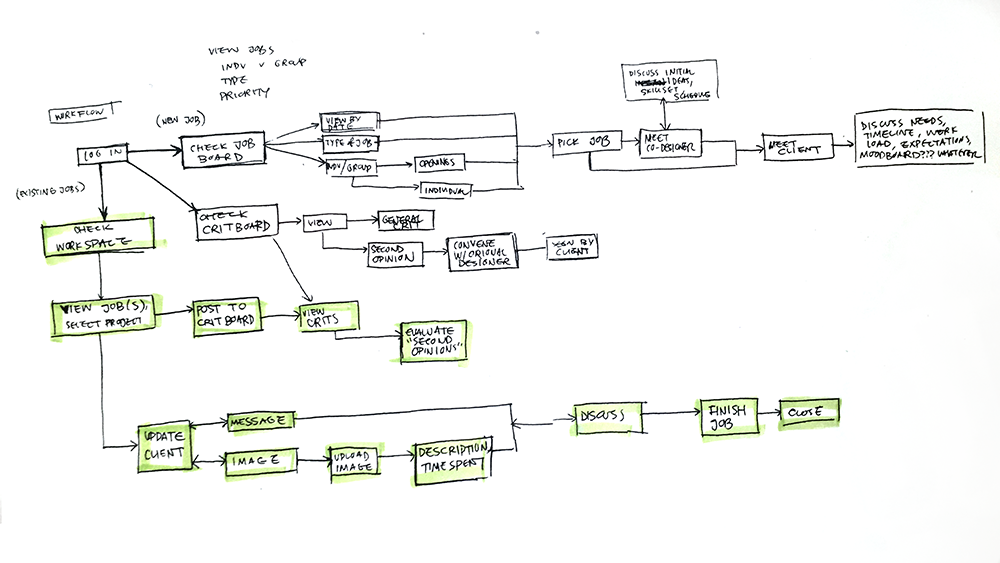 VIEW JOBS
INDV V GROUP
TYPE
PRIORITY
WORKFLOW
(NEW JOB)
LOG IN
CHECK JOB
BOARD
VIEW BY
DATE
TYPE OF JOB
INDV/GROUP
OPENINGS
INDIVIDUAL
PICK JOB
DISCUSS INITIAL
IDEAS,
SKILLSET,
SCHEDULE
MEET
CO-DESIGNER
MEET
CLIENT
DISCUSS NEEDS,
TIMELINE, WORK
LOAD, EXPECTATIONS,
MOODBOARD??? WHATEVER
(EXISTING JOBS)
CHECK
WORKSPACE
CHECK
CRITBOARD
VIEW
GENERAL
CRIT
SECOND
OPINION
CONVENE
W/ORIONAL
DESIGNER
BY
CLIENT
VIEW JOB(S),
SELECT PROJECT
POST TO
CRITBOARD
VIEW
CRITS
EVALUATE
"SECOND
OPINIONS"
UPDATE
CLIENT
MESSAGE
IMAGE
UPLOAD
IMAGE
DESCRIPTION,
TIME SPENT
DISCUSS
FINISH
JOB
CLOSE